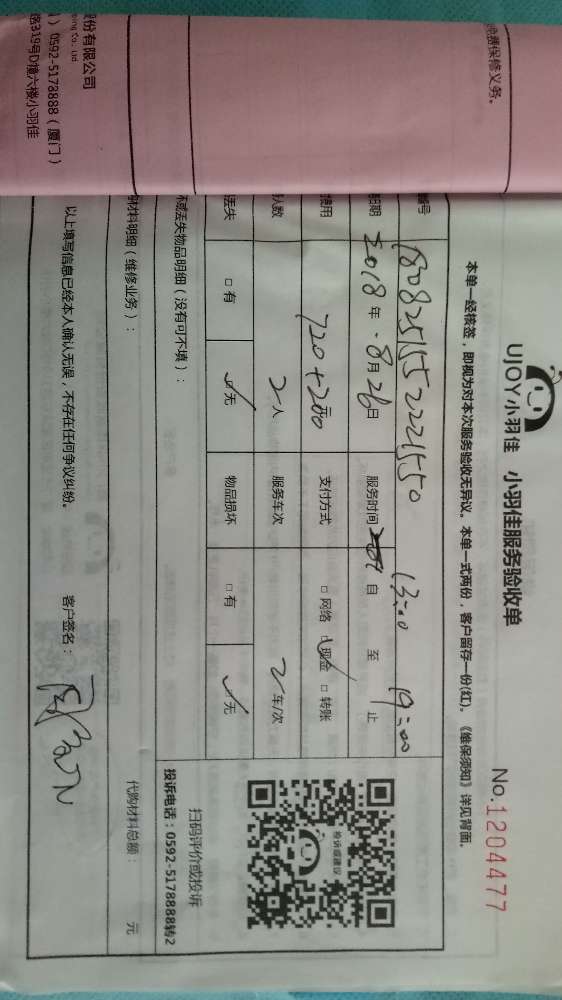 免费保修义务。
UJOY小羽佳 小羽佳服务验收单
No.1204477
本单一经核签，即视为对本次服务验收无异议。本单一式两份，客户留存一份(红)。《维保须知》详见背面。
编号 1808251552221550
日期 2018年8月26日 服务时间 13:00 自 至 19:00 止
费用 720+200元 支付方式 □网络 ☑现金 □转账
人数 2人 服务车次 2车/次
丢失 □有 ☑无 物品损坏 □有 ☑无
坏或丢失物品明细（没有可不填）：
扫码评价或投诉
投诉电话：0592-5178888转2
投诉或建议
购材料明细（维修业务）：
代购材料总额： 元
以上填写信息已经本人确认无误，不存在任何争议纠纷。 客户签名：
股份有限公司
ong Co. Ltd.
0592-5178888（厦门）
路319号D幢六楼小羽佳